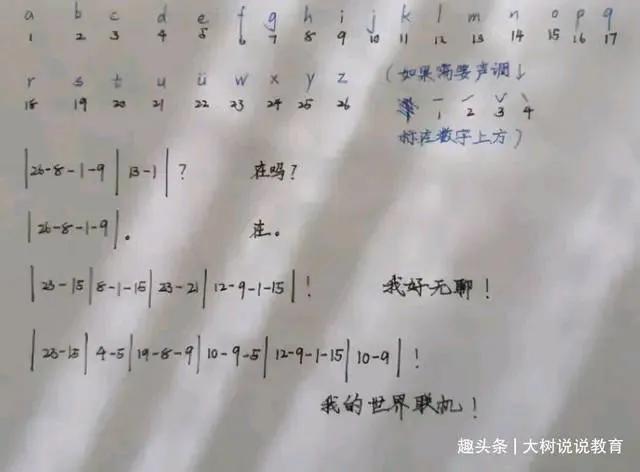 a b c d e f g h i j k l m n o p q
1 2 3 4 5 6 7 8 9 10 11 12 13 14 15 16 17
r s t u ü w x y z (如果需要声调↓
18 19 20 21 22 23 24 25 26 ˉ ˊ ˇ ˋ
1 2 3 4
标注数字上方)
|26-8-1-9|13-1|? 在吗?
|26-8-1-9|。 在。
|23-15|8-1-15|23-21|12-9-1-15|! 我好无聊!
|23-15|4-5|19-8-9|10-9-5|12-9-1-15|10-9|!
我的世界联机!
趣头条 | 大树说说教育